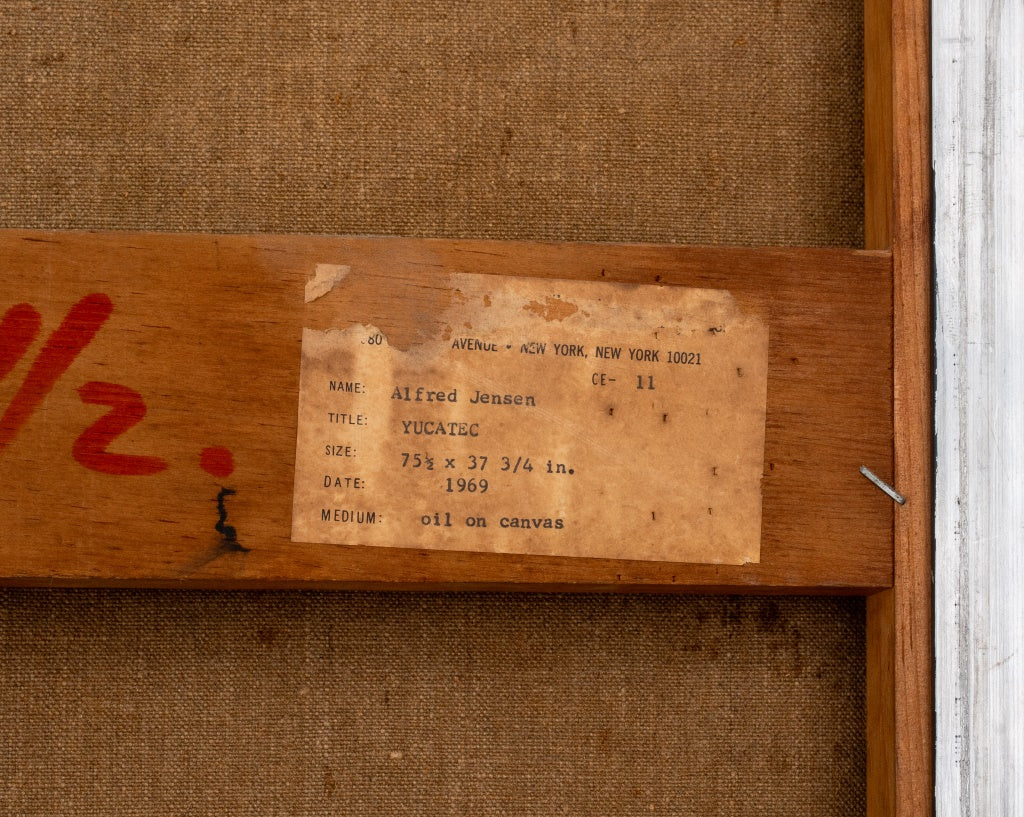 80 AVENUE • NEW YORK, NEW YORK 10021
CE- 11
NAME: Alfred Jensen
TITLE: YUCATEC
SIZE: 75½ x 37 3/4 in.
DATE: 1969
MEDIUM: oil on canvas
/2.